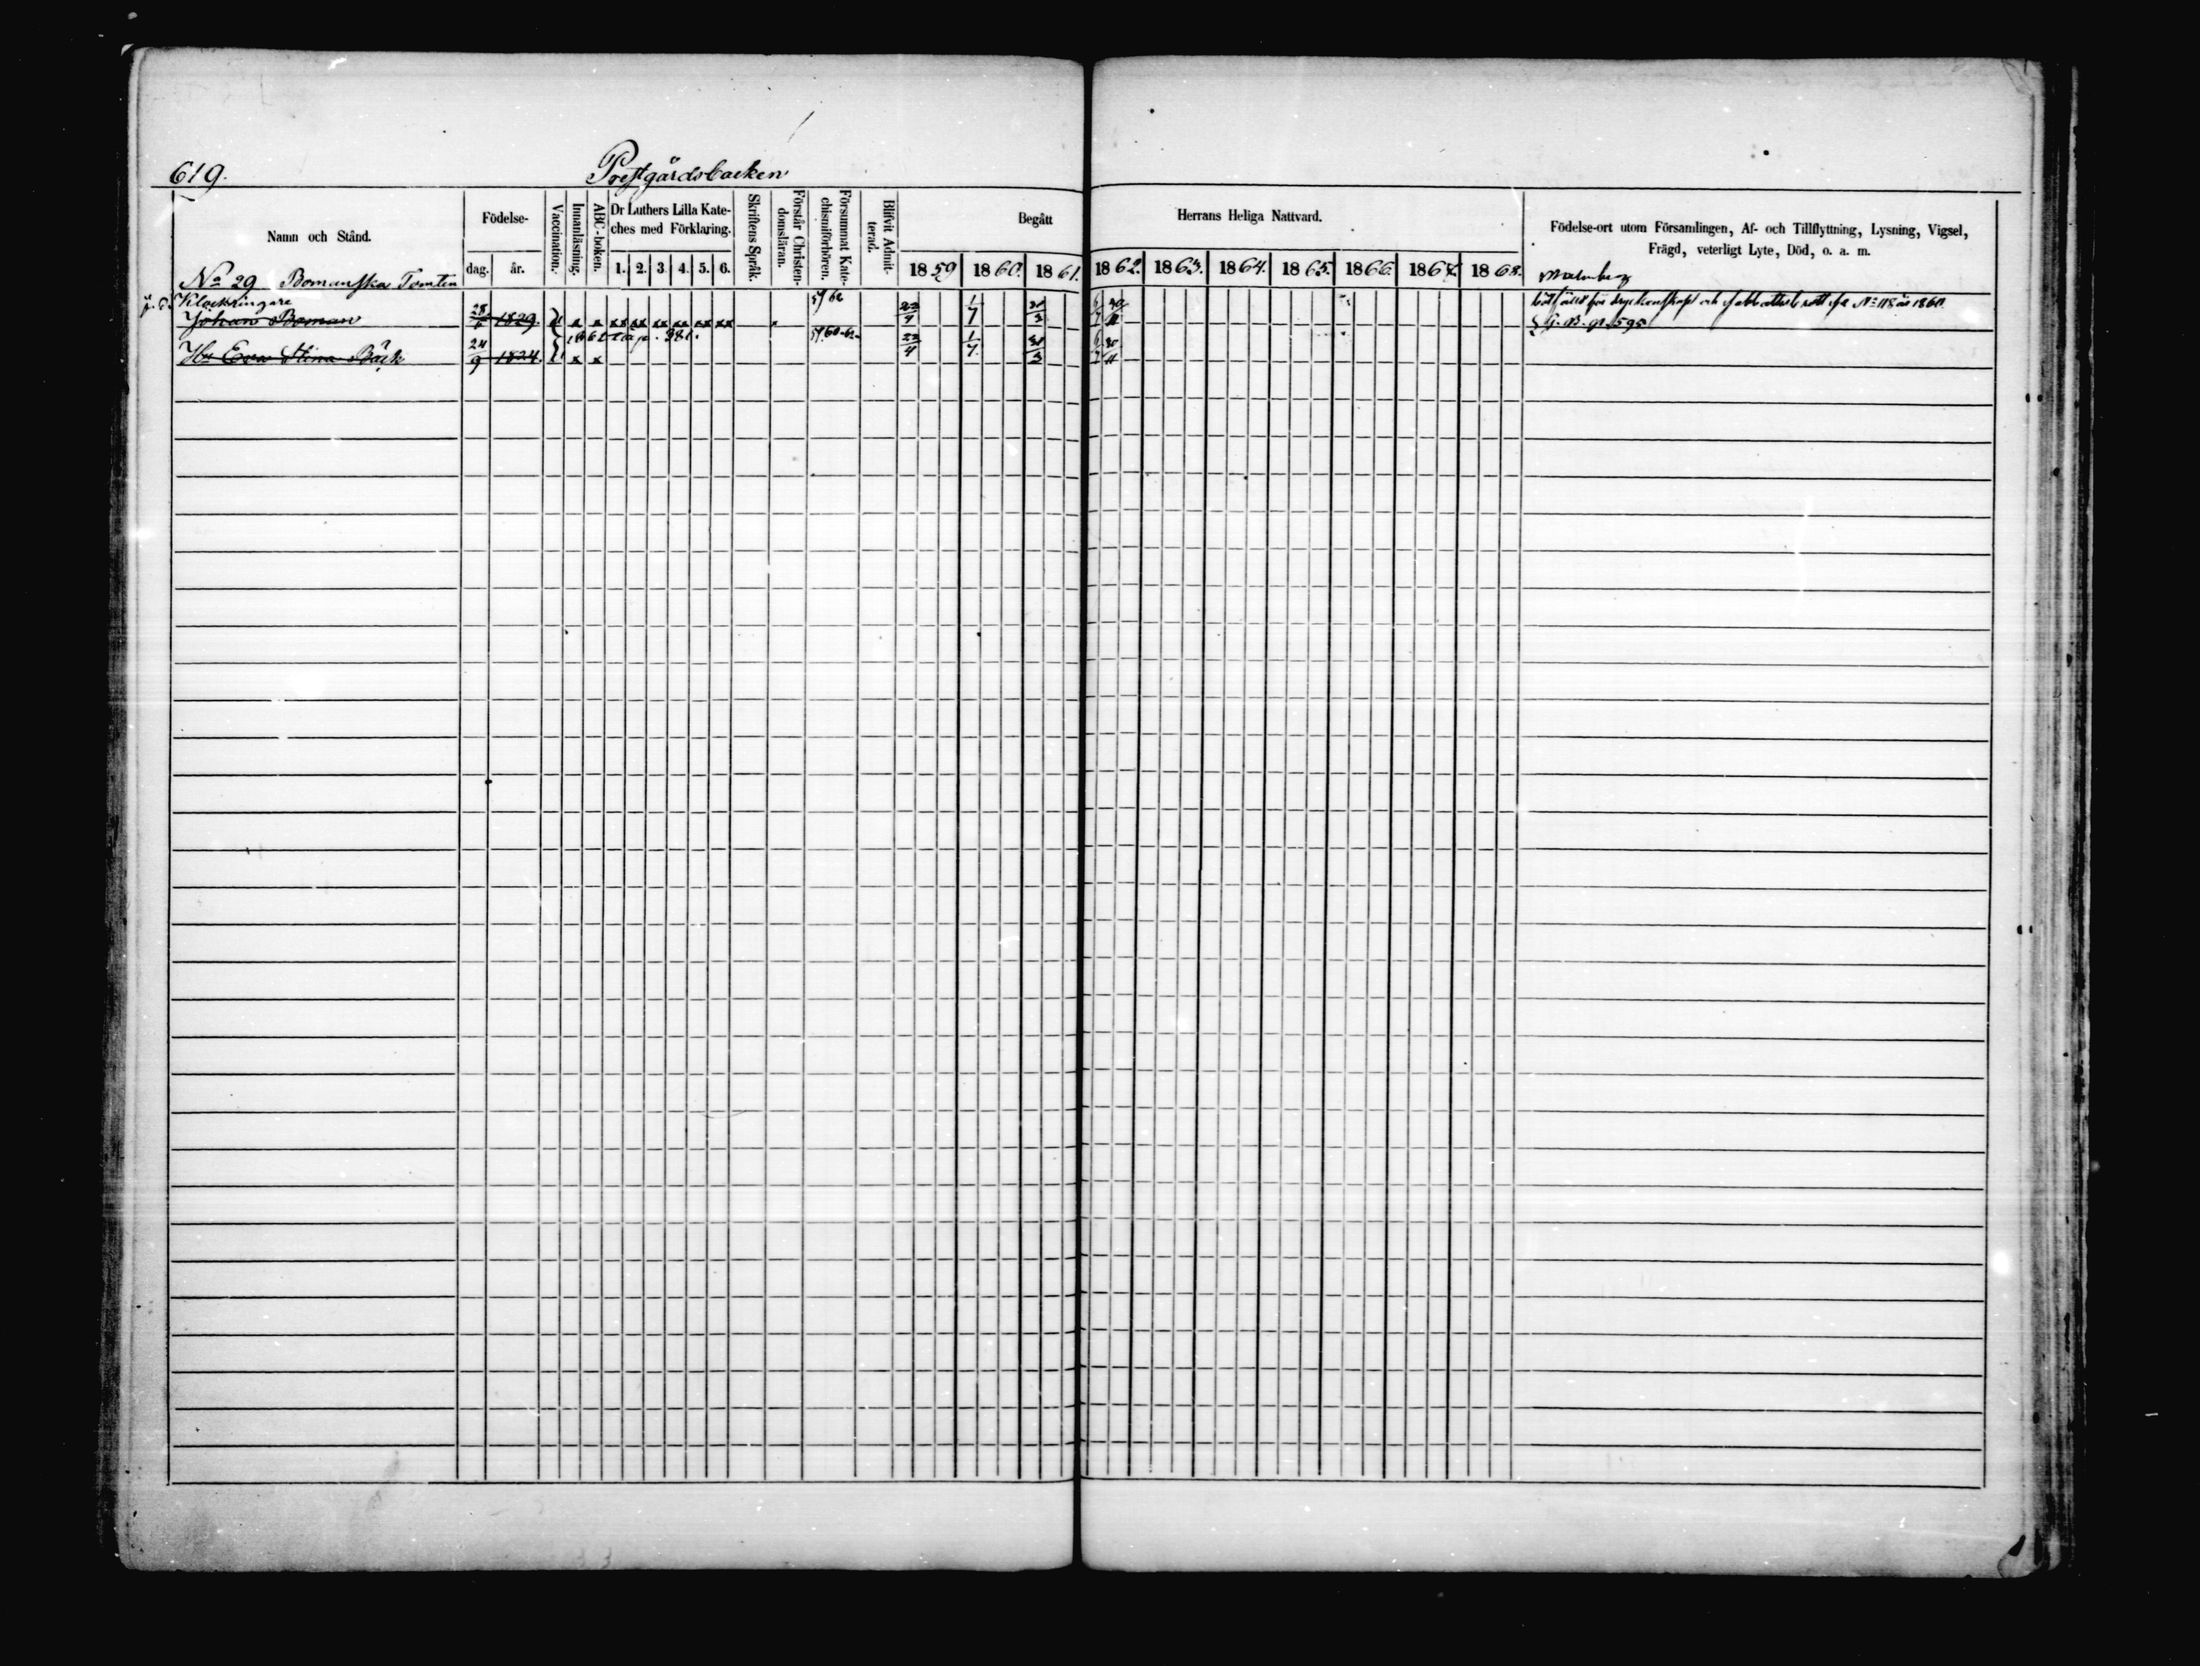 619.
Prestgårdsbacken
Namn och Stånd.
Födelse-
dag. år.
Vaccination.
Innanläsning.
ABC-boken.
Dr Luthers Lilla Kate-
ches med Förklaring.
1. 2. 3. 4. 5. 6.
Skriftens Språk.
Förstår Christen-
domsläran.
Försummat Kate-
chismiförhören.
Blifvit Admit-
terad.
Begått Herrans Heliga Nattvard.
1859 1860. 1861. 1862. 1863. 1864. 1865. 1866. 1867. 1868.
Födelse-ort utom Församlingen, Af- och Tillflyttning, Lysning, Vigsel,
Frägd, veterligt Lyte, Död, o. a. m.
No 29 Bomanska Tomten
Malmberg
Klockringare 62
Johan Boman 28 1829. x x xx xx xx xx xx xx 22/4 1/7 31/3 bötfälld för dryckenskap och sabbatsbrott No 118 år 1860
G. B. p. 595
Hu Eva Stina Bäck 24/9 1824. x x 60-62 22/4 1/7 31/3